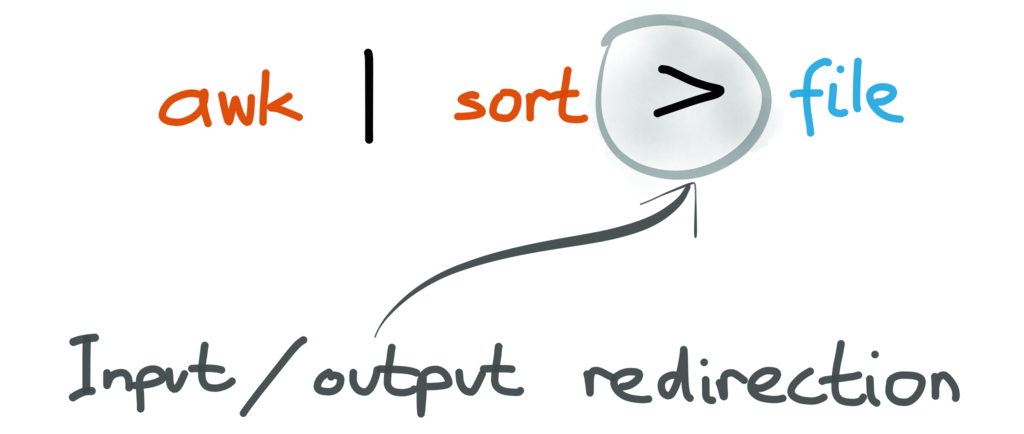 awk | sort > file
Input/output redirection